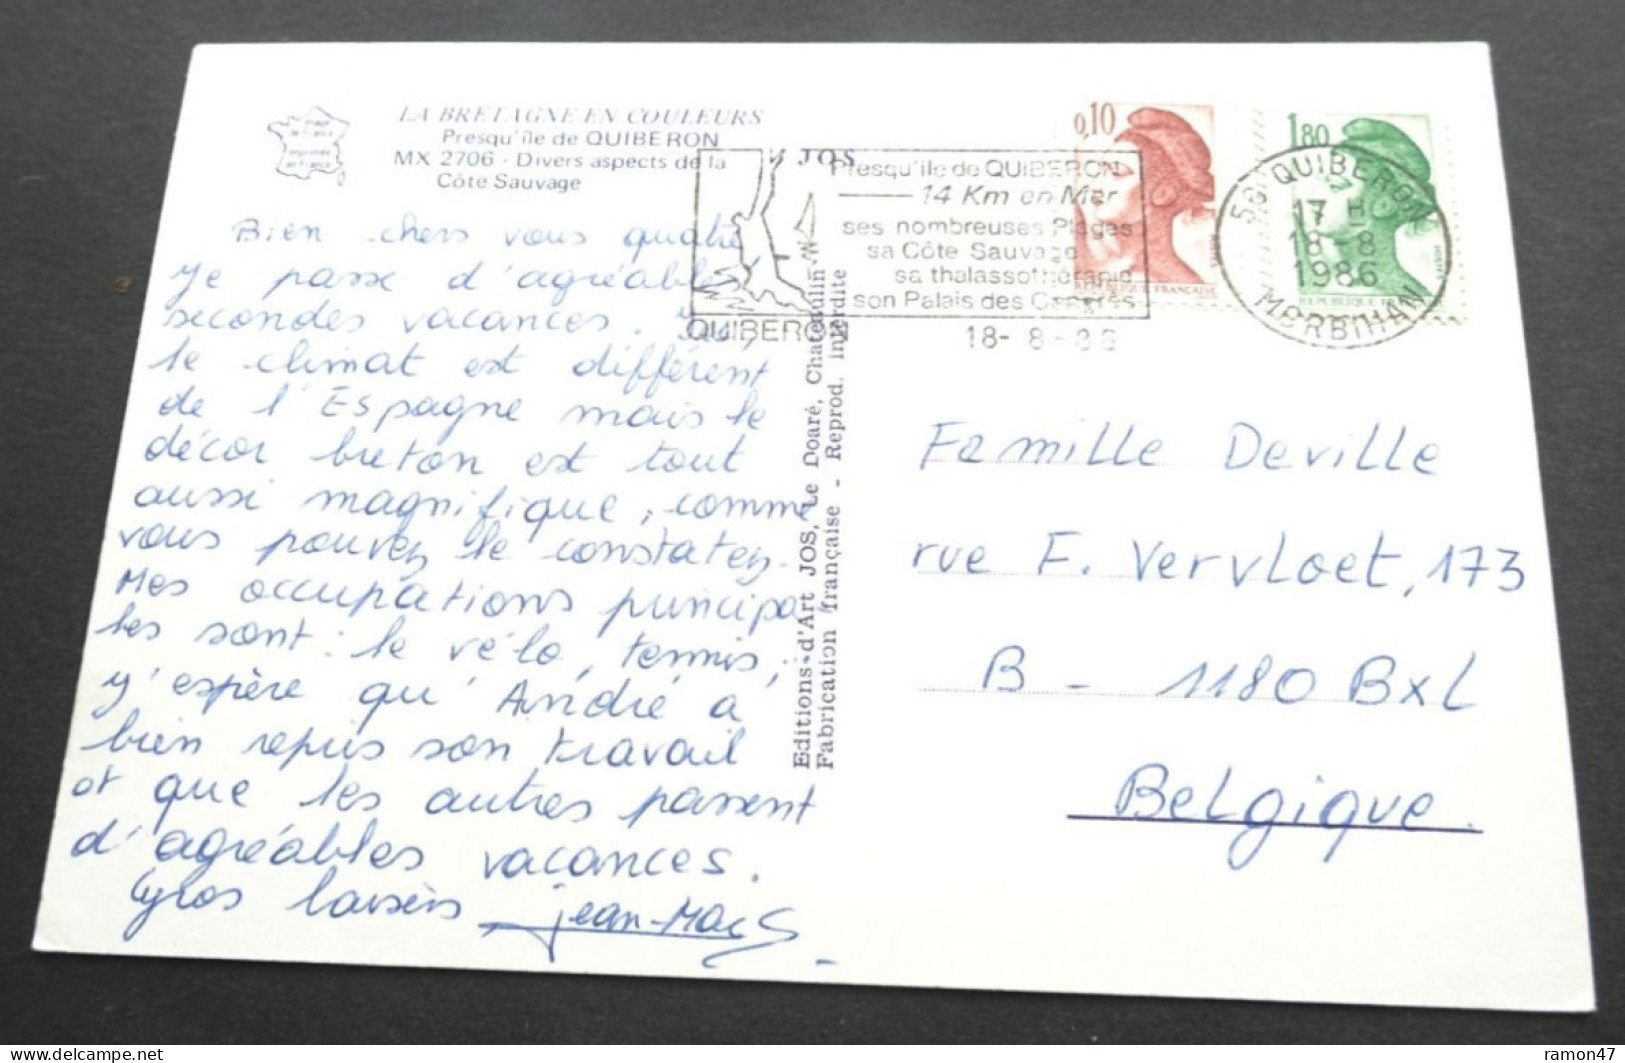 image
de France
imprimée
en France
LA BRETAGNE EN COULEURS
Presqu'île de QUIBERON
MX 2706 - Divers aspects de la
Côte Sauvage
JOS
Bien chers vous quatre
Je passe d'agréables
secondes vacances. Ici,
le climat est différent
de l'Espagne mais le
décor breton est tout
aussi magnifique, comme
vous pouvez le constatez.
Mes occupations principa
les sont : le vélo, tennis,
J'espère qu'André a
bien repris son travail
et que les autres passent
d'agréables vacances.
Gros baisers Jean-Marc
Editions d'Art JOS, Le Doaré, Chateaulin
Fabrication française - Reprod. interdite
QUIBERON
Presqu'île de QUIBERON
14 Km en Mer
ses nombreuses Plages
sa Côte Sauvage
sa thalassothérapie
son Palais des Congrès
18-8-86
0,10
REPUBLIQUE FRANÇAISE
1,80
56 QUIBERON
17 H
18-8
1986
MORBIHAN
Famille Deville
rue F. Vervloet, 173
B - 1180 BxL
Belgique.
delcampe.net
ramon47